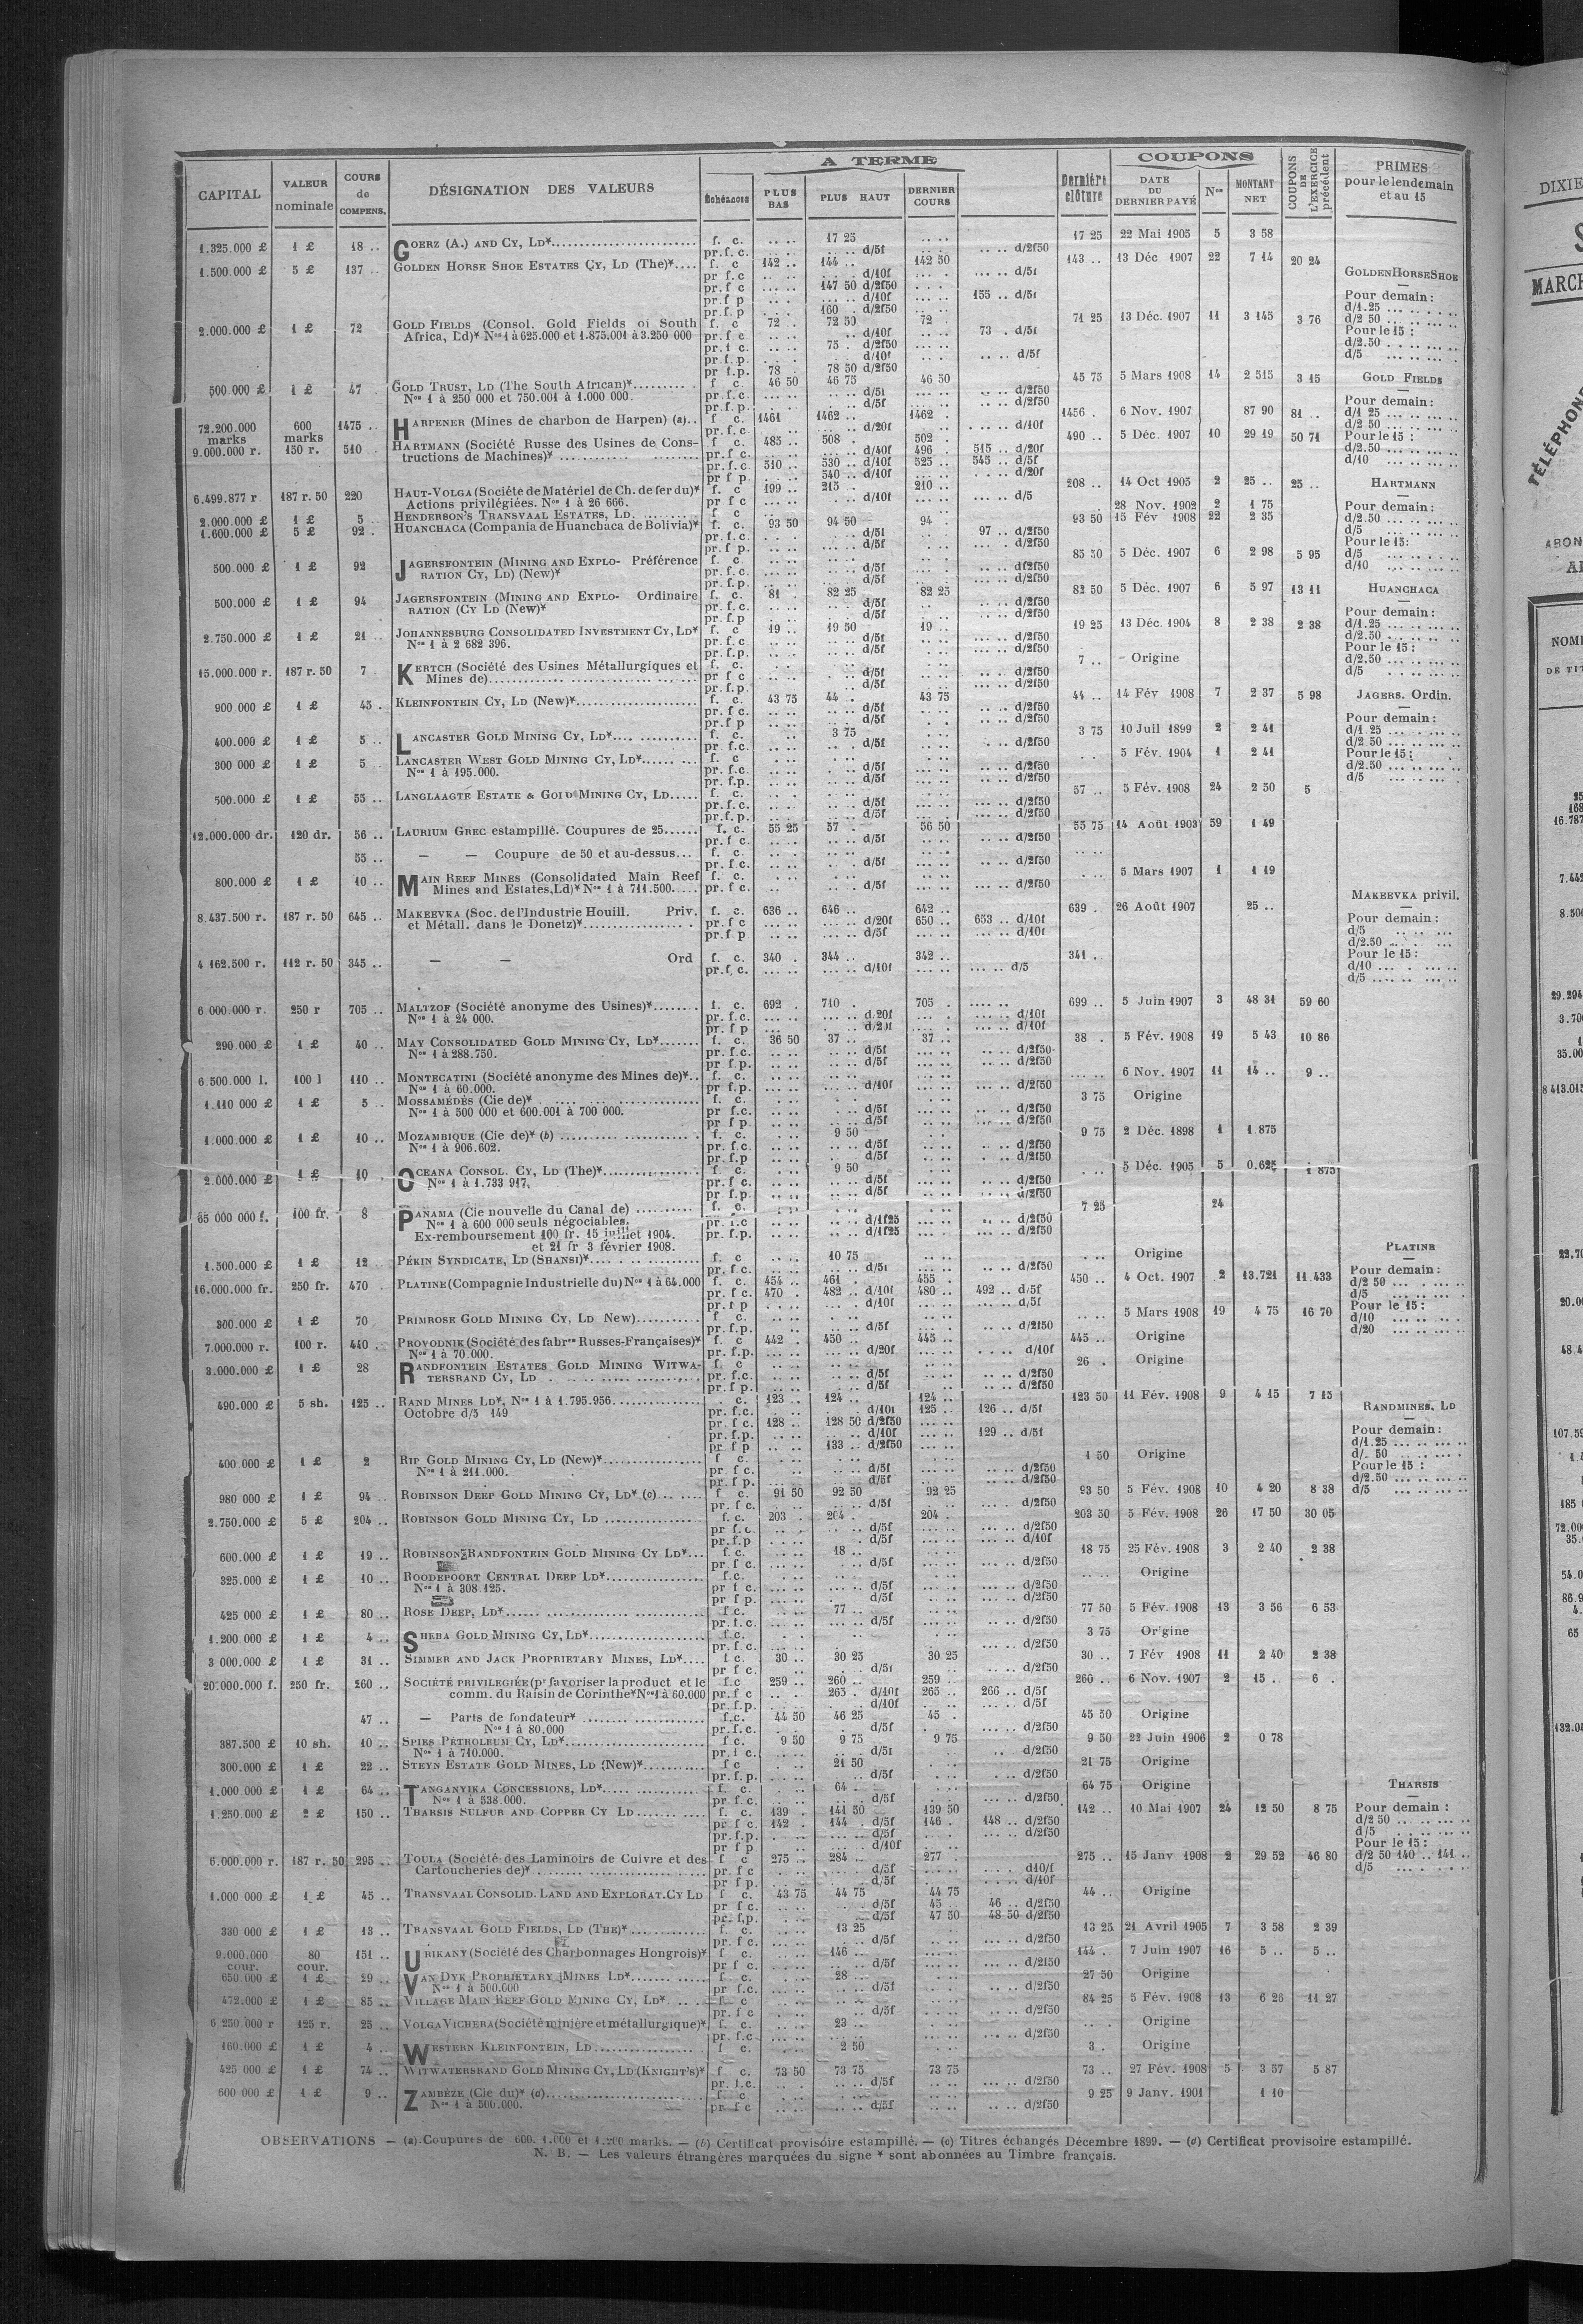 A TERME
COUPONS
CAPITAL
VALEUR nominale
COURS de COMPENS.
DÉSIGNATION DES VALEURS
Échéances
PLUS BAS
PLUS HAUT
DERNIER COURS
Dernière clôture
DATE DU DERNIER PAYÉ
Nos
MONTANT NET
COUPONS DE L'EXERCICE précédent
PRIMES pour le lendemain et au 15
1.325.000 £ 1 £ 18 .. GOERZ (A.) AND CY, LD* f. c. 17 25 17 25 22 Mai 1905 5 3 58
pr.f.c. d/5f d/2f50
1.500.000 £ 5 £ 137 .. GOLDEN HORSE SHOE ESTATES CY, LD (The)* f. c 142 .. 144 .. 142 50 143 .. 13 Déc 1907 22 7 14 20 24
pr f.c d/10f d/5f
pr.f c 147 50 d/2f50
pr.f p d/10f 155 .. d/5f
pr.f.p 160 . d/2f50
2.000.000 £ 1 £ 72 GOLD FIELDS (Consol. Gold Fields of South f. c 72 . 72 50 72 . 71 25 13 Déc. 1907 11 3 145 3 76
Africa, Ld)* Nos 1 à 625.000 et 1.875.001 à 3.250 000 pr.f c d/10f 73 . d/5f
pr.f c. 75 . d/2f50
pr.f.p. d/10f d/5f
pr f.p. 78 . 78 50 d/2f50
500 000 £ 1 £ 47 GOLD TRUST, LD (The South African)* f c. 46 50 46 75 46 50 45 75 5 Mars 1908 14 2 515 3 15
Nos 1 à 250 000 et 750.001 à 1.000 000. pr.f.c. d/5f d/2f50
pr.f.p. d/5f d/2f50
72.200.000 marks 600 marks 1475 .. HARPENER (Mines de charbon de Harpen) (a).. f c. 1461 1462 .. 1462 . 1456 . 6 Nov. 1907 87 90 81 ..
pr.f.c. d/20f d/10f
9.000.000 r. 150 r. 510 HARTMANN (Société Russe des Usines de Cons- f c. 485 .. 508 . 502 . 490 .. 5 Déc. 1907 10 29 19 50 71
tructions de Machines)* pr.f c. d/40f 496 . 515 .. d/20f
pr.f.c. 510 .. 530 .. d/10f 525 .. 545 .. d/5f
pr f p. 540 .. d/10f d/20f
6.499.877 r. 187 r. 50 220 HAUT-VOLGA (Société de Matériel de Ch. de fer du)* f. c 199 .. 215 .. 210 .. 208 .. 14 Oct 1905 2 25 .. 25 ..
Actions privilégiées. Nos 1 à 26 666. pr f c d/10f d/5
2.000.000 £ 1 £ 5 HENDERSON'S TRANSVAAL ESTATES, LD. f c 28 Nov. 1902 2 1 75
1.600.000 £ 5 £ 92 . HUANCHACA (Compania de Huanchaca de Bolivia)* f. c. 93 50 94 50 94 . 93 50 15 Fév 1908 22 2 35
pr.f.c. d/5f 97 .. d/2f50
pr.f p. d/5f d/2f50
500.000 £ 1 £ 92 JAGERSFONTEIN (MINING AND EXPLO- Préférence f. c. 85 50 5 Déc. 1907 6 2 98 5 95
RATION CY, LD) (New)* pr.f.c. d/5f d/2f50
pr.f.p. d/5f d/2f50
500.000 £ 1 £ 94 JAGERSFONTEIN (MINING AND EXPLO- Ordinaire f. c. 81 . 82 25 82 25 82 50 5 Déc. 1907 6 5 97 13 11
RATION (CY LD (New)* pr.f.c. d/5f d/2f50
pr.f.p d/5f d/2f50
2.750.000 £ 1 £ 21 .. JOHANNESBURG CONSOLIDATED INVESTMENT CY, LD* f. c 19 .. 19 50 19 .. 19 25 13 Déc. 1904 8 2 38 2 38
Nos 1 à 2 682 396. pr.f c d/5f d/2f50
pr.f.p. d/5f d/2f50
15.000.000 r. 187 r. 50 7 KERTCH (Société des Usines Métallurgiques et f. c. 7 .. Origine
Mines de) pr f c d/5f d/2f50
pr.f.p. d/5f d/2f50
900 000 £ 1 £ 45 . KLEINFONTEIN CY, LD (New)* f. c. 43 75 44 . 43 75 44 .. 14 Fév 1908 7 2 37 5 98
pr.f c. d/5f d/2f50
pr.f p d/5f d/2f50
400.000 £ 1 £ 5 .. LANCASTER GOLD MINING CY, LD* f. c. 3 75 3 75 10 Juil 1899 2 2 41
pr f.c. d/5f d/2f50
300 000 £ 1 £ 5 LANCASTER WEST GOLD MINING CY, LD* f. c 5 Fév. 1904 1 2 41
Nos 1 à 195.000. pr.f.c. d/5f d/2f50
pr f.p. d/5f d/2f50
500.000 £ 1 £ 55 .. LANGLAAGTE ESTATE & GOLD MINING CY, LD f. c. 57 .. 5 Fév. 1908 24 2 50 5
pr.f.c. d/5f d/2f50
pr.f.p. d/5f d/2f50
12.000.000 dr. 120 dr. 56 .. LAURIUM GREC estampillé. Coupures de 25 f. c. 55 25 57 . 56 50 55 75 14 Août 1903 59 1 49
pr.f c. d/5f d/2f50
55 .. — — Coupure de 50 et au-dessus f. c.
pr.f.c. d/5f d/2f50
800.000 £ 1 £ 10 .. MAIN REEF MINES (Consolidated Main Reef f. c. 5 Mars 1907 1 1 19
Mines and Estates, Ld)* Nos 1 à 711.500. pr.f c. d/5f d/2f50
8.437.500 r. 187 r. 50 645 .. MAKEEVKA (Soc. de l'Industrie Houill. Priv. f. c. 636 .. 646 .. 642 .. 639 . 26 Août 1907 25 ..
et Métall. dans le Donetz)* pr.f c d/20f 650 .. 653 .. d/10f
pr.f p d/5f d/10f
4 162.500 r. 112 r. 50 345 .. — — Ord f. c. 340 . 344 .. 342 .. 341 .
pr.f.c. d/10f d/5
6 000.000 r. 250 r 705 .. MALTZOF (Société anonyme des Usines)* f. c. 692 . 710 . 705 . 699 .. 5 Juin 1907 3 48 31 59 60
Nos 1 à 24 000. pr.f.c d/20f d/10f
pr.f p d/20f d/10f
290.000 £ 1 £ 40 .. MAY CONSOLIDATED GOLD MINING CY, LD* f. c. 36 50 37 .. 37 .. 38 . 5 Fév. 1908 19 5 43 10 86
Nos 1 à 288.750. pr.f.c. d/5f d/2f50
pr f.p. d/5f d/2f50
6.500.000 l. 100 l 110 .. MONTECATINI (Société anonyme des Mines de)* f. c. 6 Nov. 1907 11 14 .. 9 ..
Nos 1 à 60.000. pr f.p. d/10f d/2f50
1.110 000 £ 1 £ 5 MOSSAMÉDÈS (Cie de)* f. c. 3 75 Origine
Nos 1 à 500 000 et 600.001 à 700 000. pr f.c. d/5f d/2f50
pr f p. d/5f d/2f50
1.000.000 £ 1 £ 10 .. MOZAMBIQUE (Cie de)* (b) f. c. 9 50 9 75 2 Déc. 1898 1 1.875
Nos 1 à 906.602. pr.f.c. d/5f d/2f50
pr.f.p d/5f d/2f50
2.000.000 £ 1 £ 10 . OCEANA CONSOL. CY, LD (The)* f. c. 9 50 5 Déc. 1905 5 0.625 1 875
Nos 1 à 1.733 917. pr.f c. d/5f d/2f50
pr.f.p. d/5f d/2f50
65 000 000 f. 100 fr. 8 PANAMA (Cie nouvelle du Canal de) f. c. 7 25 24
Nos 1 à 600 000 seuls négociables. pr.f.c d/1f25 d/2f50
Ex-remboursement 100 fr. 15 juillet 1904. pr.f.p. d/1f25 d/2f50
et 21 fr 3 février 1908.
1.500.000 £ 1 £ 12 PÉKIN SYNDICATE, LD (SHANSI)* f. c 10 75 Origine
pr.f c. d/5f d/2f50
16.000.000 fr. 250 fr. 470 . PLATINE (Compagnie Industrielle du) Nos 1 à 64.000 f. c. 454 .. 461 . 455 . 450 .. 4 Oct. 1907 2 13.721 11.433
pr.f c. 470 . 482 .. d/10f 480 .. 492 .. d/5f
pr.f p d/10f d/5f
300.000 £ 1 £ 70 PRIMROSE GOLD MINING CY, LD New) f c. 5 Mars 1908 19 4 75 16 70
pr.f.p. d/5f d/2f50
7.000.000 r. 100 r. 440 .. PROVODNIK (Société des fabres Russes-Françaises)* f. c 442 450 .. 445 .. 445 .. Origine
Nos 1 à 70.000. pr.f.p. d/20f d/10f
3.000.000 £ 1 £ 28 RANDFONTEIN ESTATES GOLD MINING WITWA- f. c 26 . Origine
TERSRAND CY, LD pr.f.c. d/5f d/2f50
pr.f p. d/5f d/2f50
490.000 £ 5 sh. 125 .. RAND MINES LD*, Nos 1 à 1.795.956 . c. 123 .. 124 .. 124 .. 123 50 11 Fév. 1908 9 4 15 7 15
Octobre d/5 149 pr.f.c. d/10f 125 .. 126 .. d/5f
pr.f c. 128 .. 128 50 d/2f50
pr.f.p. d/10f 129 .. d/5f
pr f p 133 .. d/2f50
400.000 £ 1 £ 2 RIP GOLD MINING CY, LD (New)* f c. 1 50 Origine
Nos 1 à 211.000. pr. f c. d/5f d/2f50
pr. f p. d/5f d/2f50
980 000 £ 1 £ 94 .. ROBINSON DEEP GOLD MINING CY, LD* (c) f c. 91 50 92 50 92 25 93 50 5 Fév. 1908 10 4 20 8 38
pr.f c. d/5f d/2f50
2.750.000 £ 5 £ 204 .. ROBINSON GOLD MINING CY, LD f. c. 203 . 204 . 204 . 203 50 5 Fév. 1908 26 17 50 30 05
pr f.c. d/5f d/2f50
pr.f.p d/5f d/10f
600.000 £ 1 £ 19 .. ROBINSON RANDFONTEIN GOLD MINING CY LD* f c. 18 .. 18 75 25 Fév. 1908 3 2 40 2 38
pr f c. d/5f d/2f50
325.000 £ 1 £ 10 .. ROODEPOORT CENTRAL DEEP LD* f.c. Origine
Nos 1 à 308 125. pr f c. d/5f d/2f50
pr f p. d/5f d/2f50
425 000 £ 1 £ 80 .. ROSE DEEP, LD* f c. 77 .. 77 50 5 Fév. 1908 13 3 56 6 53
pr.f.c. d/5f d/2f50
1.200 000 £ 1 £ 4 .. SHEBA GOLD MINING CY, LD* f c. 3 75 Origine
pr.f.c. d/2f50
3 000.000 £ 1 £ 31 .. SIMMER AND JACK PROPRIETARY MINES, LD* f c. 30 .. 30 25 30 25 30 .. 7 Fév 1908 11 2 40 2 38
pr f c. d/5f d/2f50
20.000.000 f. 250 fr. 260 .. SOCIÉTÉ PRIVILEGIÉE (pr favoriser la product et le f.c 259 .. 260 .. 259 . 260 .. 6 Nov. 1907 2 15 .. 6 .
comm. du Raisin de Corinthe* Nos 1 à 60.000 pr.f c 263 . d/10f 265 .. 266 .. d/5f
pr.f.p. d/10f d/5f
47 .. — Parts de fondateur* f.c. 44 50 46 25 45 . 45 50 Origine
Nos 1 à 80.000 pr.f.c. d/5f d/2f50
387.500 £ 10 sh. 10 .. SPIES PÉTROLEUM CY, LD* f c. 9 50 9 75 9 75 9 50 22 Juin 1906 2 0 78
Nos 1 à 710.000. pr.f c. d/5f d/2f50
300.000 £ 1 £ 22 .. STEYN ESTATE GOLD MINES, LD (New)* f c 21 50 21 75 Origine
pr.f.p. d/5f d/2f50
1.000.000 £ 1 £ 64 .. TANGANYIKA CONCESSIONS, LD* f. c. 64 . 64 75 Origine
Nos 1 à 538.000. pr f c. d/5f d/2f50
1.250.000 £ 2 £ 150 .. THARSIS SULFUR AND COPPER CY LD f. c. 139 . 141 50 139 50 142 .. 10 Mai 1907 24 12 50 8 75
pr f c. 142 . 144 . d/5f 146 . 148 .. d/2f50
pr.f.p. d/5f d/2f50
pr f p d/10f
6.000.000 r. 187 r. 50 295 .. TOULA (Société des Laminoirs de Cuivre et des f c 275 .. 284 .. 277 275 .. 15 Janv 1908 2 29 52 46 80
Cartoucheries de)* pr.f c d/5f d10/f
pr f p. d/5f d/10f
1.000 000 £ 1 £ 45 .. TRANSVAAL CONSOLID. LAND AND EXPLORAT. CY LD f c. 43 75 44 75 44 75 44 .. Origine
pr f c. d/5f 45 .. 46 .. d/2f50
pr. f.p. d/5f 47 50 48 50 d/2f50
330 000 £ 1 £ 13 .. TRANSVAAL GOLD FIELDS, LD (THE)* f. c. 13 25 13 25 21 Avril 1905 7 3 58 2 39
pr.f c. d/5f d/2f50
9.000.000 cour. 80 cour. 151 .. URIKANY (Société des Charbonnages Hongrois)* f c. 146 .. 144 . 7 Juin 1907 16 5 .. 5 ..
pr f c. d/5f d/2f50
650.000 £ 1 £ 29 .. VAN DYK PROPRIETARY MINES LD* f c. 28 .. 27 50 Origine
Nos 1 à 500.000 pr f.c. d/5f d/2f50
472.000 £ 1 £ 85 .. VILLAGE MAIN REEF GOLD MINING CY, LD* f c 84 25 5 Fév. 1908 13 6 26 11 27
pr. f c d/5f d/2f50
6 250 000 r 125 r. 25 .. VOLGA VICHERA (Société minière et métallurgique)* f. c. 23 .. Origine
pr.f.c d/2f50
160.000 £ 1 £ 4 .. WESTERN KLEINFONTEIN, LD f c. 2 50 3 . Origine
425 000 £ 1 £ 74 .. WITWATERSRAND GOLD MINING CY, LD (KNIGHT'S)* f c. 73 50 73 75 73 75 73 .. 27 Fév. 1908 5 3 57 5 87
pr. f.c. d/5f d/2f50
600 000 £ 1 £ 9 .. ZAMBÈZE (Cie du)* (d) f c 9 25 9 Janv. 1901 1 10
Nos 1 à 500.000. pr f c d/5f d/2f50
GOLDEN HORSE SHOE
Pour demain:
d/1.25
d/2 50
Pour le 15:
d/2.50
d/5
GOLD FIELDS
Pour demain:
d/1 25
d/2 50
Pour le 15:
d/2.50
d/10
HARTMANN
Pour demain:
d/2.50
d/5
Pour le 15:
d/5
d/10
HUANCHACA
Pour demain:
d/1.25
d/2.50
Pour le 15:
d/2.50
d/5
JAGERS. Ordin.
Pour demain:
d/1 25
d/2 50
Pour le 15:
d/2.50
d/5
MAKEEVKA privil.
Pour demain:
d/5
d/2.50
Pour le 15:
d/10
d/5
PLATINE
Pour demain:
d/2 50
d/5
Pour le 15:
d/10
d/20
RANDMINES, LD
Pour demain:
d/1.25
d/. 50
Pour le 15:
d/2.50
d/5
THARSIS
Pour demain:
d/2 50
d/5
Pour le 15:
d/2 50 140 .. 141 ..
d/5
OBSERVATIONS — (a) Coupures de 600, 1.000 et 1.200 marks. — (b) Certificat provisoire estampillé. — (c) Titres échangés Décembre 1899. — (d) Certificat provisoire estampillé.
N. B. — Les valeurs étrangères marquées du signe * sont abonnées au Timbre français.
DIXIE
MARCH
TÉLÉPHONE
ABON
NOM
DE TIT